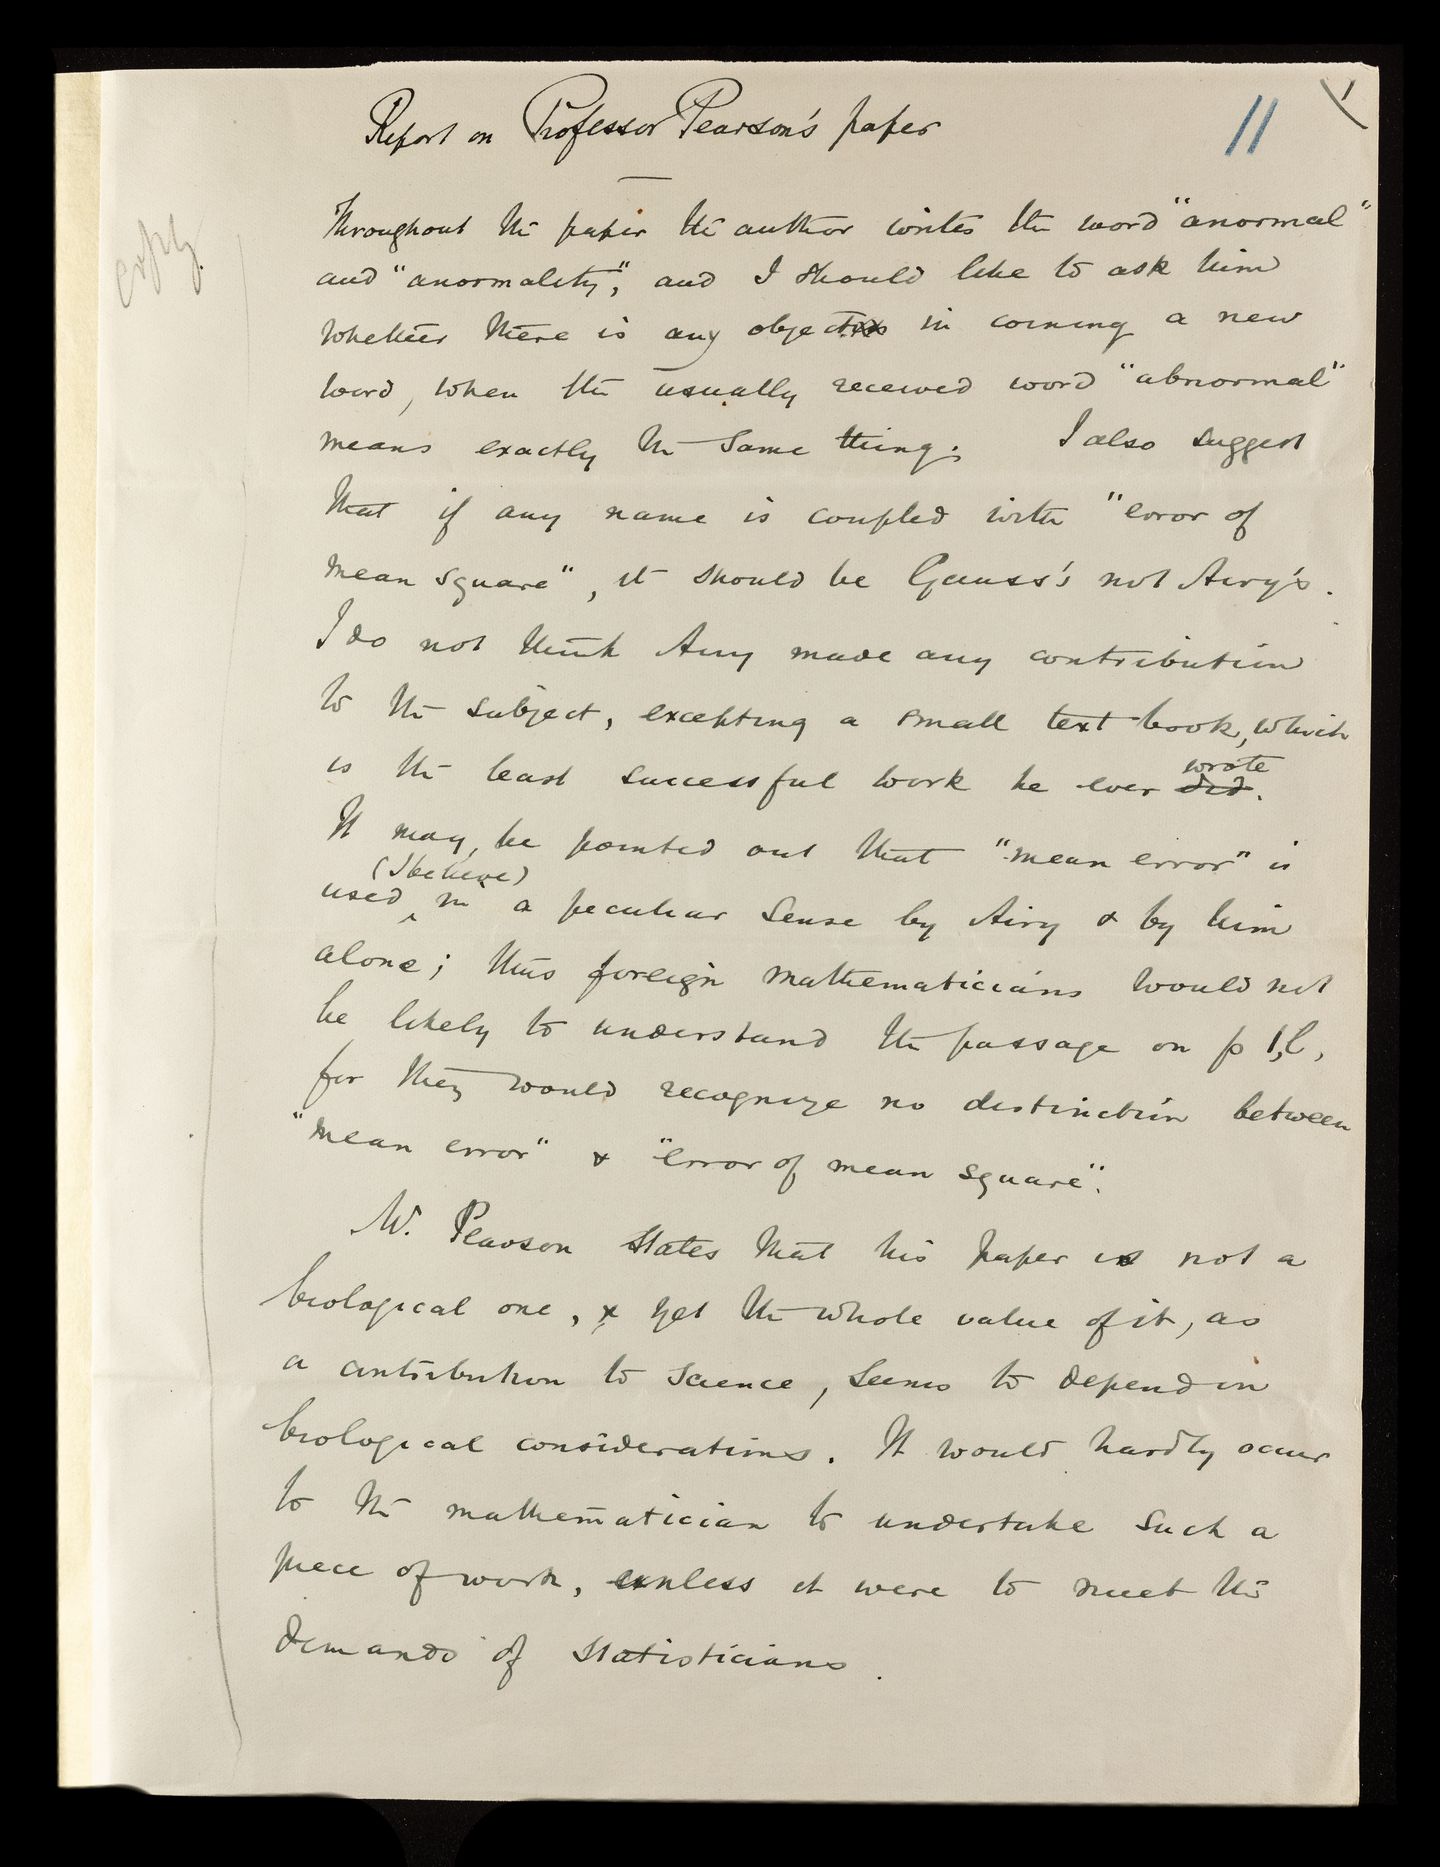 1
11
Report on Professor Pearson's paper
copy.
Throughout the paper the author writes the word "anormal"
and "anormality", and I should like to ask him
whether there is any object in coining a new
word, when the usually received word "abnormal"
means exactly the same thing. I also suggest
that if any name is coupled with "error of
mean square", it should be Gauss's not Airy's.
I do not think Airy made any contribution
to the subject, excepting a small text book, which
is the least successful work he ever did. wrote
It may be pointed out that "mean error" is
used (I believe) in a peculiar sense by Airy & by him
alone; thus foreign mathematicians would not
be likely to understand the passage on p 1,
for they would recognize no distinction between
"mean error" & "error of mean square".
Mr. Pearson states that his paper is not a
biological one, & yet the whole value of it, as
a contribution to science, seems to depend on
biological considerations. It would hardly occur
to the mathematician to undertake such a
piece of work, unless it were to meet the
demands of statisticians.